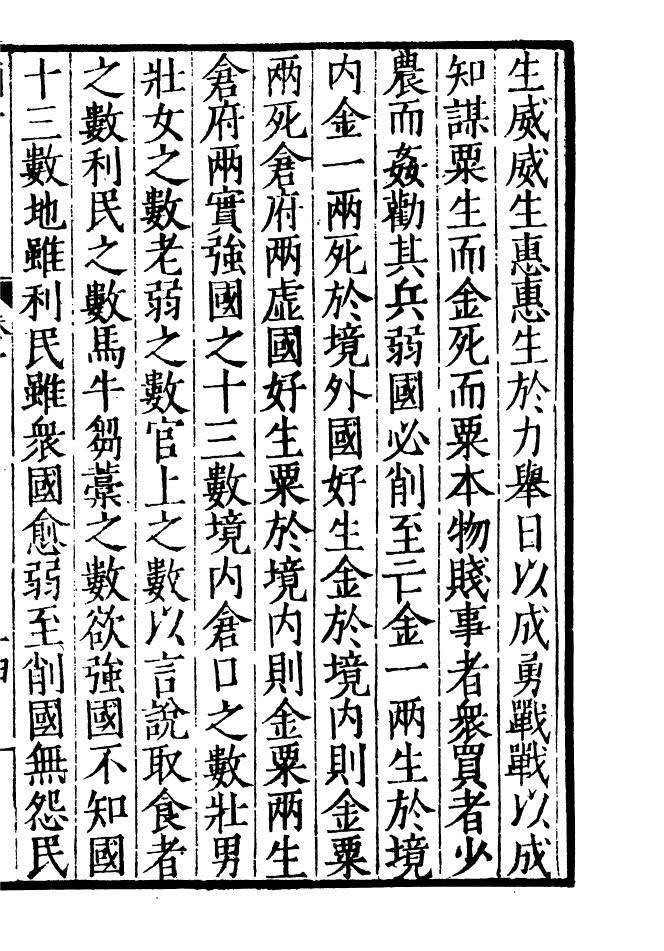 生威威生惠惠生於力舉日以成勇戰戰以成
知謀粟生而金死而粟本物賤事者衆買者少
農而姦勸其兵弱國必削至亡金一兩生於境
内金一兩死於境外國好生金於境内則金粟
兩死倉府兩虛國好生粟於境内則金粟兩生
倉府兩實強國之十三數境内倉口之數壯男
壯女之數老弱之數官上之數以言說取食者
之數利民之數馬牛芻藁之數欲強國不知國
十三數地雖利民雖衆國愈弱至削國無怨民